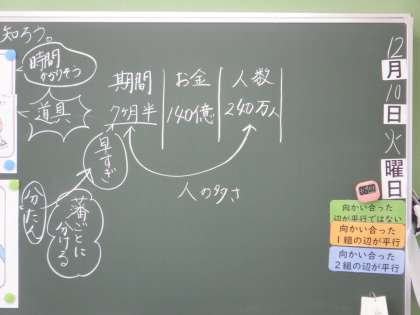 知ろう。
時間
かかりそう
道具
期間
7ヶ月半
お金
140億
人数
240万人
早すぎ
人の多さ
分たん
藩ごとに
分ける
12
月
10
日
火
曜
日
向かい合った
辺が平行ではない
向かい合った
1組の辺が平行
向かい合った
2組の辺が平行